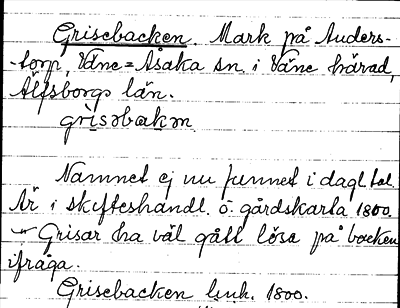 Grisebacken. Mark på Anders-
torp, Väne=Åsaka sn. i Väne härad,
Älfsborgs län.
gri̱səbakən
Namnet ej nu funnet i dagl. tal.
Är i skifteshandl. o. gårdskarta 1800.
Grisar ha väl gått lösa på backen
ifråga.
Grisebacken 1800.